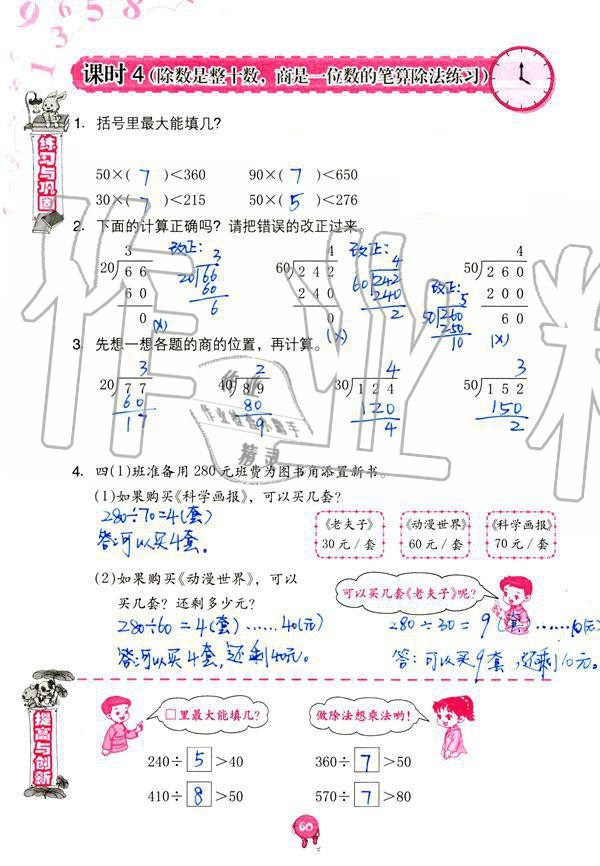 9 6 3 5 8
3
1
课时 4(除数是整十数，商是一位数的笔算除法练习)
练习与巩固
1. 括号里最大能填几?
50×( 7 )<360 90×( 7 )<650
30×( 7 )<215 50×( 5 )<276
2. 下面的计算正确吗? 请把错误的改正过来。
改正: 改正:
3 3 4 4 4
20 66 20 66 60 242 60 242 50 260 改正:
60 60 240 240 200 5
0 6 0 2 60 50 260
250
(×) (×) 10 (×)
3. 先想一想各题的商的位置，再计算。
3 2 4 3
20 77 40 89 30 124 50 152
60 80 120 150
17 9 4 2
4. 四(1)班准备用 280 元班费为图书角添置新书。
(1)如果购买《科学画报》，可以买几套?
280÷70=4(套)
答:可以买4套。
《老夫子》 《动漫世界》 《科学画报》
30 元/套 60 元/套 70 元/套
(2)如果购买《动漫世界》，可以
买几套? 还剩多少元?
可以买几套《老夫子》呢?
280÷60=4(套)……40(元) 280÷30=9(套)……10(元)
答:可以买4套,还剩40元。 答:可以买9套,还剩10元。
提高与创新
□里最大能填几? 做除法想乘法哟!
240÷ 5 >40 360÷ 7 >50
410÷ 8 >50 570÷ 7 >80
60
作业精灵